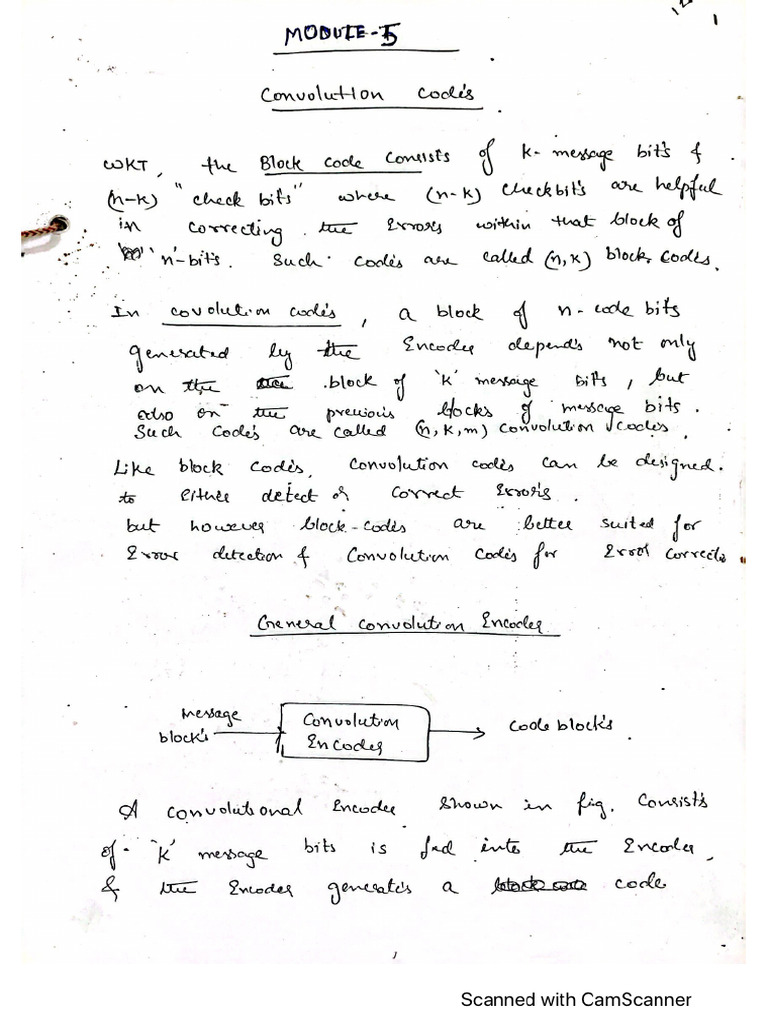 1
MODULE-5
Convolution codes
WKT, the Block code consists of k-message bits &
(n-k) "check bits" where (n-k) checkbits are helpful
in correcting the Errors within that block of
'n'-bits. Such codes are called (n,k) block codes.
In covolution codes, a block of n-code bits
generated by the Encoder depends not only
on the block of 'k' message bits, but
also on the previous blocks of message bits.
Such codes are called (n,k,m) convolution codes
Like block codes, convolution codes can be designed
to either detect or correct Errors.
but however block-codes are better suited for
Error detection & Convolution codes for Error correcte
General convolution Encoder
message
blocks
Convolution
Encoder
code blocks.
A convolutional Encoder shown in fig. consists
of 'k' message bits is fed into the Encoder,
& the Encoder generates a code
Scanned with CamScanner